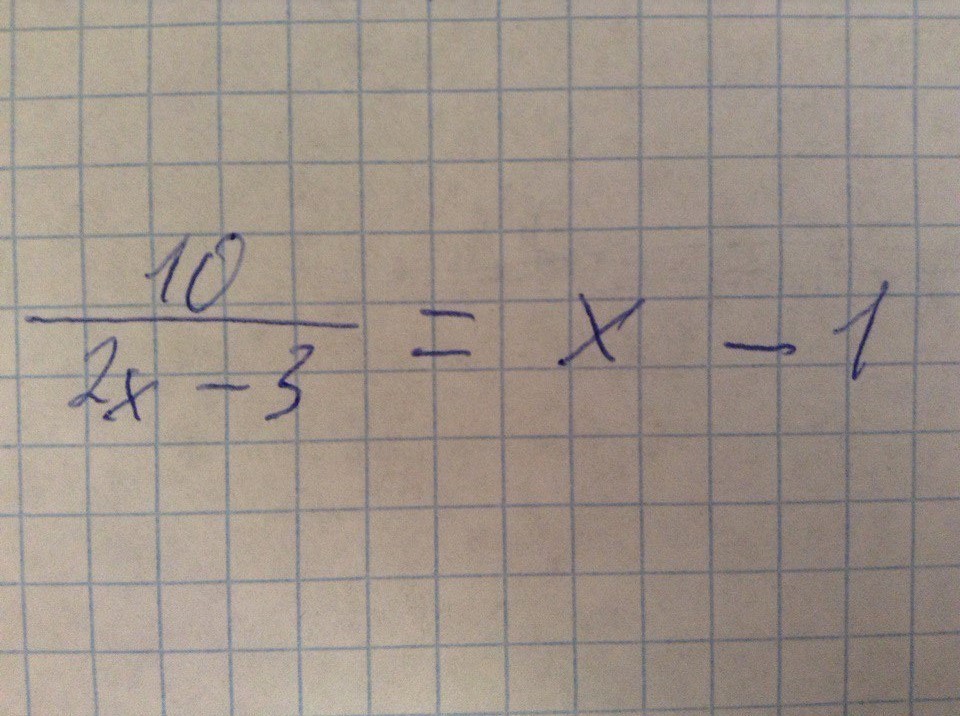 10
—— = x - 1
2x - 3